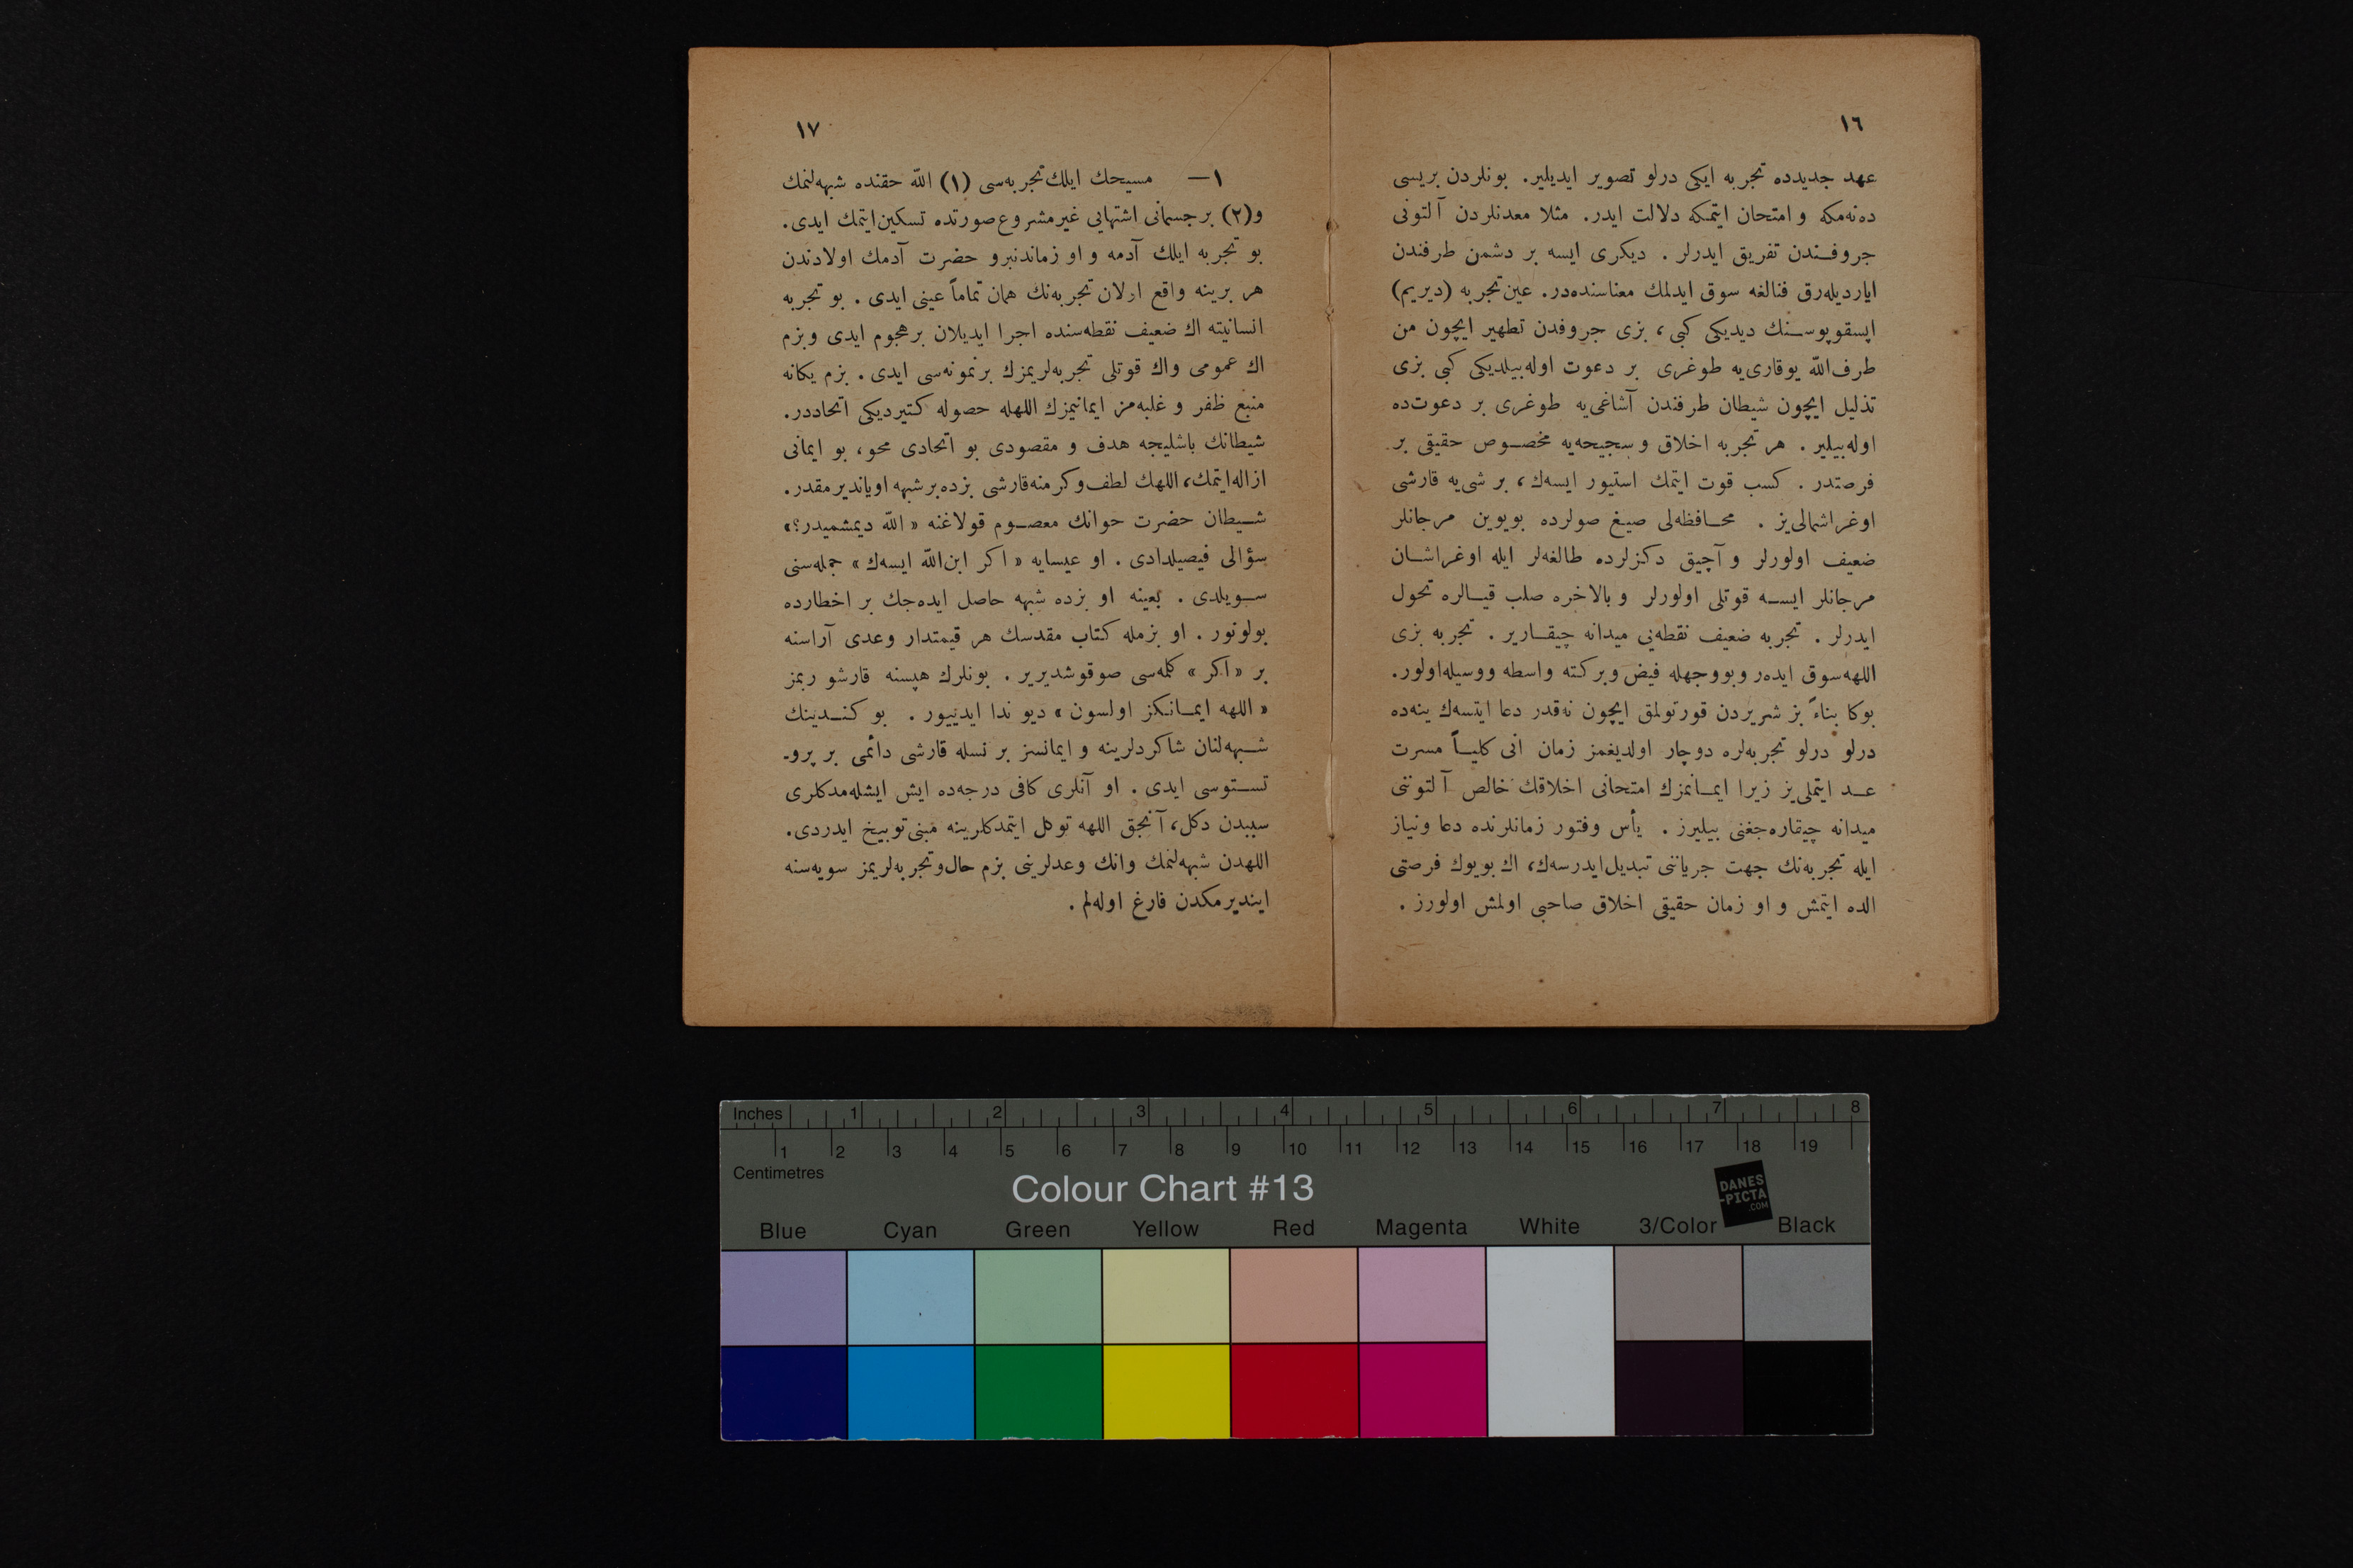 ١٦
عهد جديدده تجربه ايكى درلو تصوير ايديلير. بونلردن بريسى
ده‌نه‌مكه و امتحان ايتمكه دلالت ايدر. مثلا معدنلردن آلتونى
جروفـندن تفريق ايدرلر . ديكرى ايسه بر دشمن طرفندن
اياردیله‌رق فنالغه سوق ايدلمك معناسنده‌در. عين تجربه (ديريم)
اپسقوپوسـنك ديديكى كبى ، بزى جروفدن تطهير ايچون من
طرف‌الله يوقارى‌يه طوغرى بر دعوت اوله‌بيلديكى كبى بزى
تذليل ايچون شيطان طرفندن آشاغى‌يه طوغرى بر دعوت‌ده
اوله‌بيلير . هر تجربه اخلاق و سجيحه‌يه مخصـوص حقيقى بر
فرصتدر . كسب قوت ايتمك استيور ايسه‌ك ، بر شى‌يه قارشى
اوغراشمالى‌يز . محـافظه‌لى صيغ صولرده بويوين مرجانلر
ضعيف اولورلر و آچيق دكزلرده طالغه‌لر ايله اوغراشـان
مرجانلر ايسـه قوتلى اولورلر و بالاخره صلب قيـالره تحول
ايدرلر . تجربه ضعيف نقطه‌يى ميدانه چيقـارير . تجربه بزى
اللهه‌سوق ايده‌ر وبووجهله فيض وبركته واسطه ووسيله‌اولور.
بوكا بناءً بز شريردن قورتولمق ايچون نه‌قدر دعا ايتسه‌ك ينه‌ده
درلو درلو تجربه‌لره دوچار اولديغمز زمان انى كليـاً مسرت
عـد ايتملى‌يز زيرا ايمـانمزك امتحانى اخلاقك خالص آلتوننى
ميدانه چيقاره‌جغنى بيليرز . يأس وفتور زمانلرنده دعا ونياز
ايله تجربه‌نك جهت جرياننى تبديل‌ايدرسه‌ك، اك بويوك فرصتى
الده ايتمش و او زمان حقيقى اخلاق صاحبى اولمش اولورز .
١٧
١— مسيحك ايلك تجربه‌سى (١) الله حقنده شبهه‌لنمك
و(٢) برجسمانى اشتهايى غيرمشروع صورتده تسكين‌ايتمك ايدى.
بو تجربه ايلك آدمه و او زماندنبرو حضرت آدمك اولادندن
هر برينه واقع اولان تجربه‌نك همان تماماً عينى ايدى . بو تجربه
انسانيته اك ضعيف نقطه‌سنده اجرا ايديلان برهجوم ايدى وبزم
اك عمومى واك قوتلى تجربه‌لريمزك برنمونه‌سى ايدى . بزم يكانه
منبع ظفر و غلبه‌مز ايمانيمزك اللهله حصوله كتيرديكى اتحاددر.
شيطانك باشليجه هدف و مقصودى بو اتحادى محو، بو ايمانى
ازاله‌ايتمك، اللهك لطف‌وكرمنه‌قارشى بزده‌برشبهه اوياندير‌مقدر.
شـيطان حضرت حوانك معصـوم قولاغنه « الله ديمشميدر؟»
سؤالى فيصيلدادى . او عيسايه « اكر ابن‌الله ايسه‌ك » جمله‌سنى
سـويلدى . بعينه او بزده شبهه حاصل ايده‌جك بر اخطارده
بولونور . او بزمله كتاب مقدسك هر قيمتدار وعدى آراسنه
بر « اكر » كلمه‌سى صوقوشديرير . بونلرك هپسنه قارشو ربمز
« اللهه ايمـانكز اولسون » ديو ندا ايدييور . بو كنـدينك
شـبهه‌لنان شاكردلرينه و ايمانسز بر نسله قارشى دائمى بر پرو-
تسـتوسى ايدى . او آنلرى كافى درجه‌ده ايش ايشله‌مدكلرى
سببدن دكل، آنجق اللهه توكل ايتمدكلرينه مبنى‌توبيخ ايدردى.
اللهدن شبهه‌لنمك وانك وعدلرينى بزم حال‌وتجربه‌لريمز سويه‌سنه
اينديرمكدن فارغ اوله‌لم .
Inches 1 2 3 4 5 6 7 8
1 2 3 4 5 6 7 8 9 10 11 12 13 14 15 16 17 18 19
Centimetres
Colour Chart #13
DANES
-PICTA
.COM
Blue Cyan Green Yellow Red Magenta White 3/Color Black